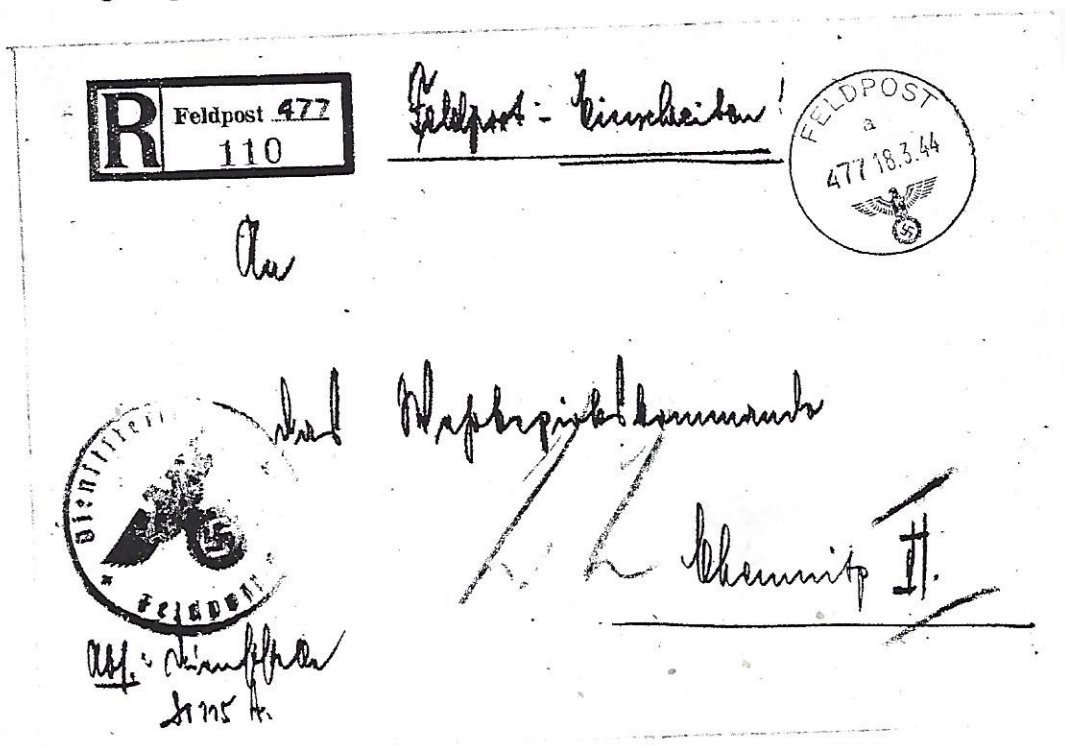 R Feldpost 477
110
Feldpost - Einschreiben!
FELDPOST
a
477 18.3.44
An
das Wehrbezirkskommando
Chemnitz II.
Feldpost
Abs.: Dienststelle